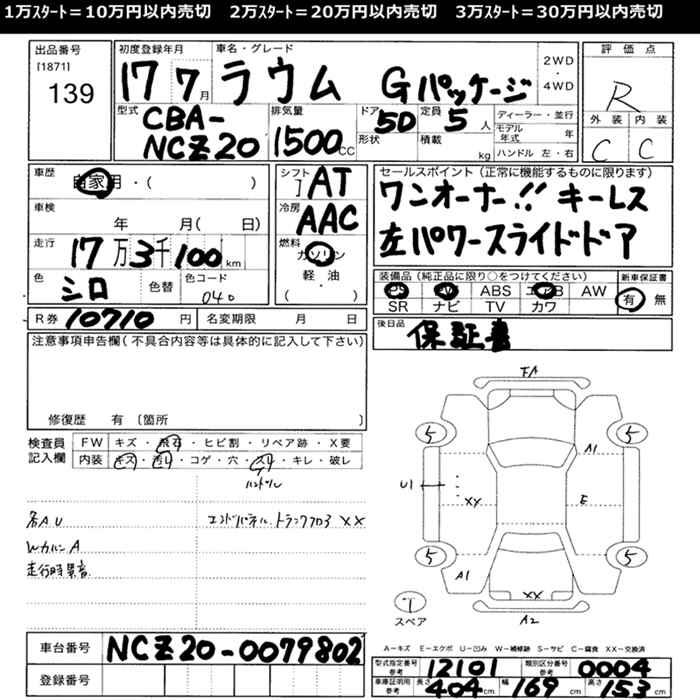 1万ｽﾀｰﾄ＝10万円以内売切　2万ｽﾀｰﾄ＝20万円以内売切　3万ｽﾀｰﾄ＝30万円以内売切
出品番号
[1871]
139
初度登録年月
17 7月
車名・グレード
ラウム Gパッケージ
2WD
・
4WD
評価点
R
外装 内装
C C
型式
CBA-
NCZ20
排気量
1500cc
ドア
5D
形状
定員
5人
積載
kg
ディーラー・並行
モデル年式 年
ハンドル 左・右
車歴
自家用・( )
車検
年 月( 日)
走行
17万3千100km
色
シロ
色替
色コード
040
シフト
AT
冷房
AAC
燃料
ガソリン
軽・油
( )
セールスポイント (正常に機能するものに限ります)
ワンオーナー!! キーレス
左パワースライドドア
装備品 (純正品に限り○をつけてください)
PS PW ABS エアB AW
SR ナビ TV カワ
新車保証書
有 無
R券 10710円
名変期限 月 日
後日品
保証書
注意事項申告欄(不具合内容等は具体的に記入して下さい)
修復歴 有 〔箇所
検査員
記入欄
FW キズ・飛石・ヒビ割・リペア跡・X要
内装 キズ・汚れ・コゲ・穴・スレ・キレ・破レ
ハンドル
各A U
エンドパネル、トランクフロア XX
Wカバン A
走行時異音
FA
5 5
A1
U1
XY
E
5 5
A1
XX
A2
スペア
A－キズ E－エクボ U－凹み W－補修跡 S－サビ C－腐食 XX－交換済
車台番号
NCZ20-0079802
登録番号
型式指定番号
参考
12101
類別区分番号
参考
0004
車庫証明用
参考
長さ 404cm
幅 169cm
高さ 153cm